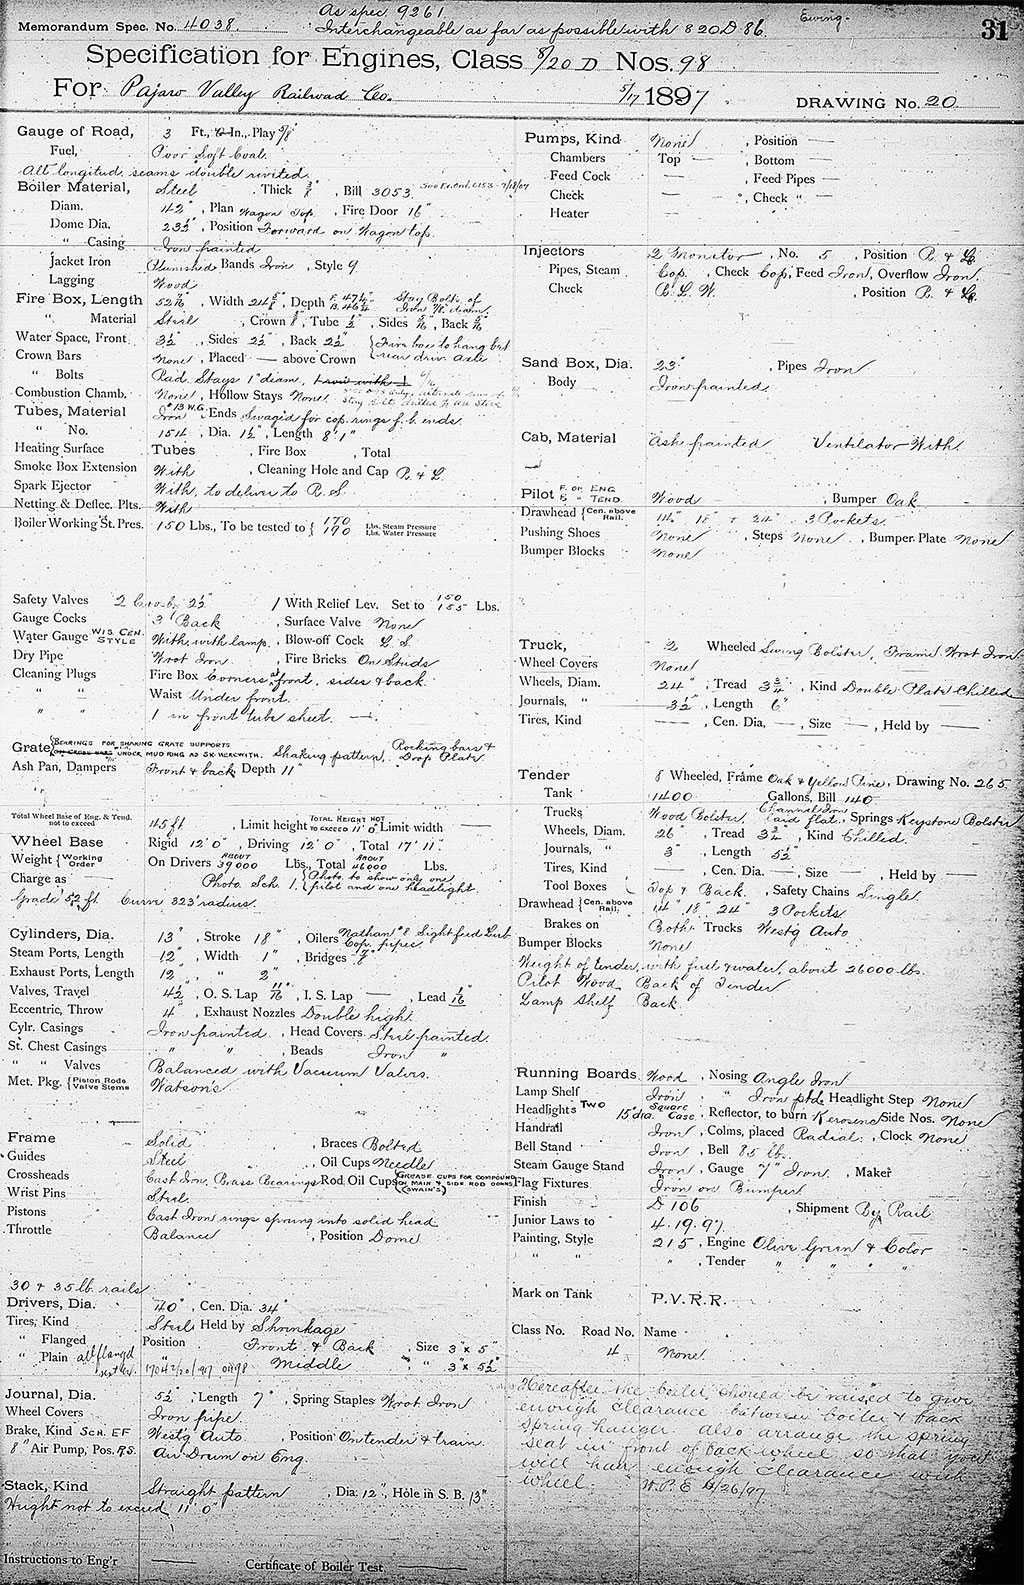 As spec. 9261. Ewing.
Memorandum Spec. No. 4038. Interchangeable as far as possible with 8 20 D 86. 31
Specification for Engines, Class 8/20 D Nos. 98
For Pajaro Valley Railroad Co. 5/17 1897 DRAWING No. 20
Gauge of Road, 3 Ft., In., Play
Fuel, Poor Soft Coal.
All longitud. seams double riveted.
Boiler Material, Steel, Thick, Bill 3053.
Diam. 42", Plan Wagon Top, Fire Door 16"
Dome Dia. 23½", Position Forward on Wagon top.
" Casing Iron painted
Jacket Iron Planished Bands Iron, Style 9
Lagging Wood
Fire Box, Length, Width, Depth Stay Bolts of Iron 7/8" diam.
" Material Steel, Crown, Tube ½", Sides, Back
Water Space, Front 3½", Sides 2½", Back 2½" Fire box to hang bet
Crown Bars None, Placed — above Crown rear driv. axle
" Bolts Rad. Stays 1" diam.
Combustion Chamb. None, Hollow Stays None
Tubes, Material Iron, Ends Swaged for cop. rings f. b. ends.
" No. 154, Dia. 1½", Length 8' 1"
Heating Surface Tubes, Fire Box, Total
Smoke Box Extension With, Cleaning Hole and Cap R. & L.
Spark Ejector With, to deliver to R. S.
Netting & Deflec. Plts. With
Boiler Working St. Pres. 150 Lbs., To be tested to { 170 Lbs. Steam Pressure
190 Lbs. Water Pressure
Safety Valves 2 Crosby 2½" / With Relief Lev. Set to 150 155 Lbs.
Gauge Cocks 3 Back, Surface Valve None
Water Gauge WIS. CEN. STYLE With, with lamp, Blow-off Cock L. S.
Dry Pipe Wrot Iron, Fire Bricks On Studs
Cleaning Plugs Fire Box Corners, front, sides & back.
" " Waist Under front.
" " 1 in front tube sheet. —
Grate BEARINGS FOR SHAKING GRATE SUPPORTS UNDER MUD RING AS SK. HEREWITH. Shaking pattern, Rocking bars & Drop Plate
Ash Pan, Dampers Front & back Depth 11"
Total Wheel Base of Eng. & Tend. not to exceed 45 ft, Limit height TOTAL HEIGHT NOT TO EXCEED 11' 0" Limit width —
Wheel Base Rigid 12' 0", Driving 12' 0", Total 17' 11"
Weight { Working Order On Drivers ABOUT 39000 Lbs., Total ABOUT 46000 Lbs.
Charge as — Photo. Sch. 1. { Photo. to show only one pilot and one headlight.
Grade 52 ft Curve 323' radius.
Cylinders, Dia. 13", Stroke 18", Oilers Nathan #8 Sight feed Lub Cop. pipes
Steam Ports, Length 12", Width 1", Bridges
Exhaust Ports, Length 12", " 2"
Valves, Travel 4½", O. S. Lap 11/16", I. S. Lap —, Lead 1/16"
Eccentric, Throw 4", Exhaust Nozzles Double high.
Cylr. Casings Iron painted, Head Covers Steel painted.
St. Chest Casings " ", Beads Iron "
" " Valves Balanced with Vacuum Valves.
Met. Pkg. { Piston Rods Valve Stems Watson's
Frame Solid, Braces Bolted
Guides Steel, Oil Cups Needle
Crossheads Cast Iron, Brass Bearings Rod Oil Cups GREASE CUPS FOR COMPOUND ON MAIN & SIDE ROD CONNS. (SWAIN'S)
Wrist Pins Steel.
Pistons Cast Iron rings sprung into solid head
Throttle Balance, Position Dome
30 & 35 lb. rails
Drivers, Dia. 40", Cen. Dia. 34"
Tires, Kind Steel Held by Shrinkage
" Flanged Position Front & Back, Size 3" x 5"
" Plain all flanged Middle " " 3" x 5½"
Journal, Dia. 5½", Length 7", Spring Staples Wrot Iron
Wheel Covers Iron pipe.
Brake, Kind SCH. EF Westg Auto., Position On tender & train.
8" Air Pump, Pos. R.S. Air Drum on Eng.
Stack, Kind Straight pattern, Dia. 12", Hole in S. B. 13"
Height not to exceed 11' 0"
Instructions to Eng'r — Certificate of Boiler Test —
Pumps, Kind None, Position —
Chambers Top —, Bottom —
Feed Cock —, Feed Pipes —
Check — ", Check " —
Heater —
Injectors 2 Monitor, No. 5, Position R. & L.
Pipes, Steam Cop., Check Cop., Feed Iron, Overflow Iron.
Check B. L. W., Position R. & L.
Sand Box, Dia. 23", Pipes Iron
Body Iron painted.
Cab, Material Ash painted Ventilator With.
Pilot F. OF ENG. B. " TEND. Wood, Bumper Oak
Drawhead { Cen. above Rail. 14" 18" & 24" 3 Pockets.
Pushing Shoes None, Steps None, Bumper Plate None
Bumper Blocks None
Truck, 2 Wheeled Swing Bolster, Frame Wrot Iron
Wheel Covers None
Wheels, Diam. 24", Tread 3¾", Kind Double Plate Chilled
Journals, " 3½", Length 6"
Tires, Kind —, Cen. Dia, —, Size —, Held by —
Tender 8 Wheeled, Frame Oak & Yellow Pine, Drawing No. 265
Tank 1400 Gallons, Bill 140
Trucks Wood Bolster, Channel Iron laid flat, Springs Keystone Bolster
Wheels, Diam. 26", Tread 3¾", Kind Chilled.
Journals, " 3", Length 5½"
Tires, Kind —, Cen. Dia. —, Size —, Held by —
Tool Boxes Top & Back, Safety Chains Single
Drawhead { Cen. above Rail, 14" 18" 24" 3 Pockets
Brakes on Both Trucks Westg Auto
Bumper Blocks None
Weight of tender, with fuel & water, about 26000 lbs.
Pilot Wood Back of Tender
Lamp Shelf Back.
Running Boards Wood, Nosing Angle Iron
Lamp Shelf Iron, " Iron ptd. Headlight Step None
Headlights Two 15" dia. Square Case, Reflector, to burn Kerosene Side Nos. None
Handrail Iron, Colms, placed Radial, Clock None
Bell Stand Iron, Bell 85 lb.
Steam Gauge Stand Iron, Gauge 7" Iron Maker
Flag Fixtures Iron on Bumper
Finish D 106, Shipment By Rail
Junior Laws to 4. 19. 97.
Painting, Style 215, Engine Olive Green & Color
" " ", Tender " " " "
Mark on Tank P. V. R. R.
Class No. Road No. Name
4 None.
Hereafter the boiler should be raised to give
enough clearance between boiler & back
spring hanger. also arrange the spring
seat in front of back wheel so that you
will have enough clearance with
wheel. W. P. E /26/97